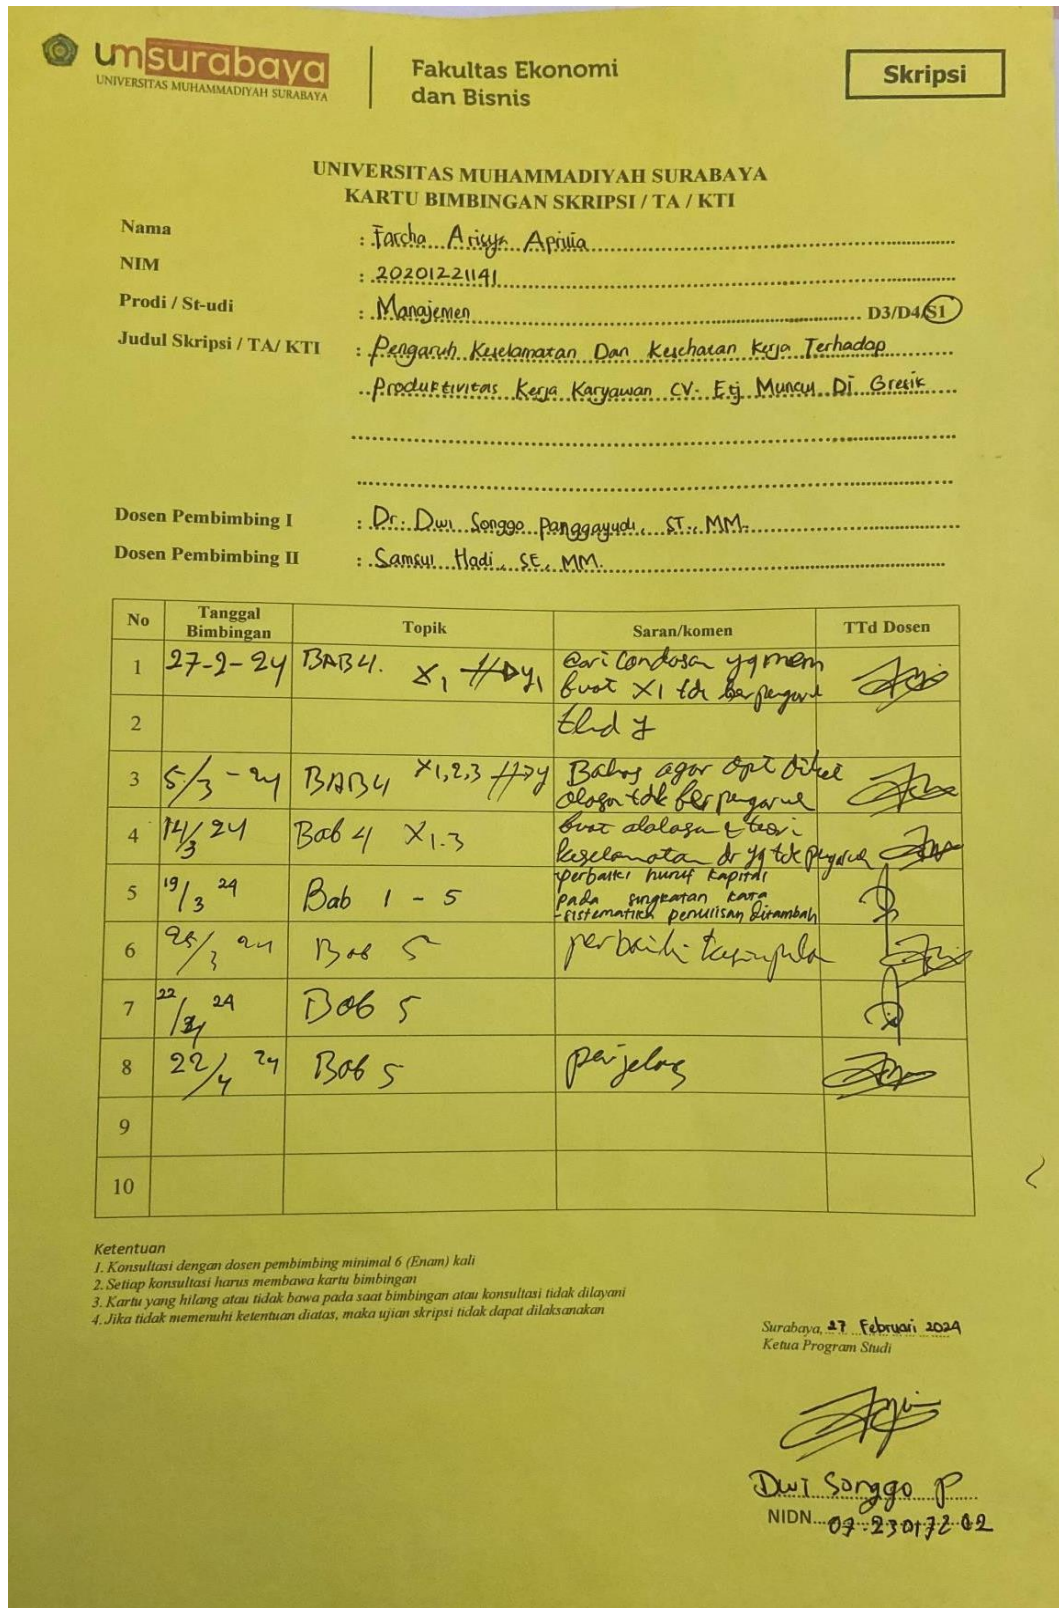 umsurabaya
UNIVERSITAS MUHAMMADIYAH SURABAYA
Fakultas Ekonomi
dan Bisnis
Skripsi
UNIVERSITAS MUHAMMADIYAH SURABAYA
KARTU BIMBINGAN SKRIPSI / TA / KTI
Nama : Farcha Arisya Aprilia
NIM : 20201221141
Prodi / St-udi : Manajemen D3/D4/S1
Judul Skripsi / TA/ KTI : Pengaruh Keselamatan Dan Kesehatan Kerja Terhadap
Produktivitas Kerja Karyawan CV. Etj Muncul Di Gresik
Dosen Pembimbing I : Dr. Dwi Songgo Panggayudi, ST., MM.
Dosen Pembimbing II : Samsul Hadi, SE, MM.
No Tanggal Bimbingan Topik Saran/komen TTd Dosen
1 27-2-24 BAB 4. X1 y1 yg mem
buat X1 tdk berpengaruh
2 thd y
3 5/3 - 24 BAB 4 X1,2,3 y Bahas agar dpt
tdk berpengaruh
4 14/3 24 Bab 4 X1.3 buat teori
keselamatan dr yg tdk pengaruh
5 19/3 24 Bab 1 - 5 -perbaiki huruf kapital
pada singkatan kata
-sistematika penulisan ditambah
6 25/3 24 Bab 5 perbaiki kesimpulan
7 22/4 24 Bab 5
8 22/4 24 Bab 5 perjelas
9
10
Ketentuan
1. Konsultasi dengan dosen pembimbing minimal 6 (Enam) kali
2. Setiap konsultasi harus membawa kartu bimbingan
3. Kartu yang hilang atau tidak bawa pada saat bimbingan atau konsultasi tidak dilayani
4. Jika tidak memenuhi ketentuan diatas, maka ujian skripsi tidak dapat dilaksanakan
Surabaya, 27 Februari 2024
Ketua Program Studi
Dwi Songgo P
NIDN. 07.230172 02